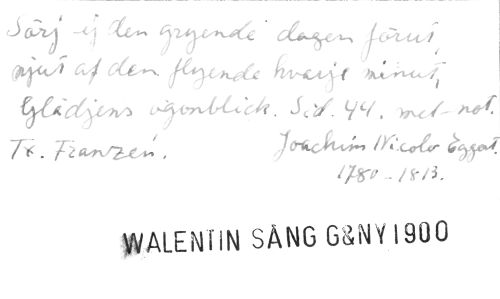 Sörj ej den gryende dagen förut,
njut af den flyende hvarje minut,
Glädjens ögonblick. Sid. 44. met-not.
Tx. Franzén. Joachim Nicolo Eggert.
1780-1813.
WALENTIN SÅNG G&NY 1900